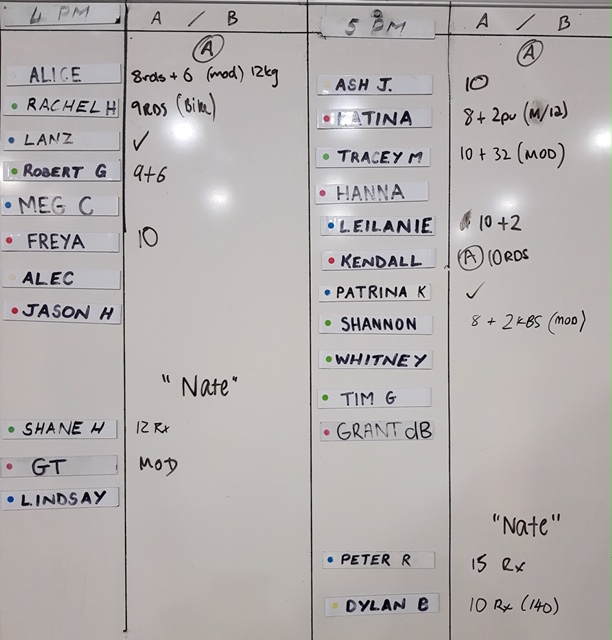 4 PM A / B
A
ALICE 8rds + 6 (mod) 12kg
RACHEL H 9RDS (Bike)
LANZ ✓
ROBERT G 9+6
MEG C
FREYA 10
ALEC
JASON H
"Nate"
SHANE H 12 Rx
GT MOD
LINDSAY
5 PM A / B
A
ASH J. 10
KATINA 8 + 2pu (M/12)
TRACEY M 10 + 32 (MOD)
HANNA
LEILANIE 10 +2
KENDALL A 10RDS
PATRINA K ✓
SHANNON 8 + 2KBS (MOD)
WHITNEY
TIM G
GRANT dB
"Nate"
PETER R 15 Rx
DYLAN B 10 Rx (140)